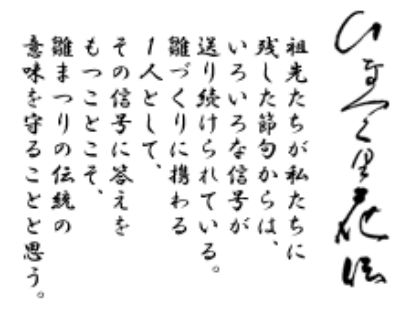 祖先たちが私たちに
残した節句からは、
いろいろな信号が
送り続けられている。
雛づくりに携わる
1人として、
その信号に答えを
もつことこそ、
雛まつりの伝統の
意味を守ることと思う。